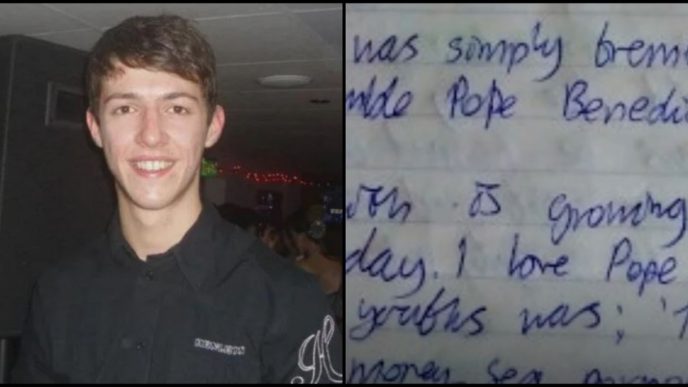 was simply trem
mble Pope Benedi
is growing
day. I love Pope
youths was; '
money, sex,